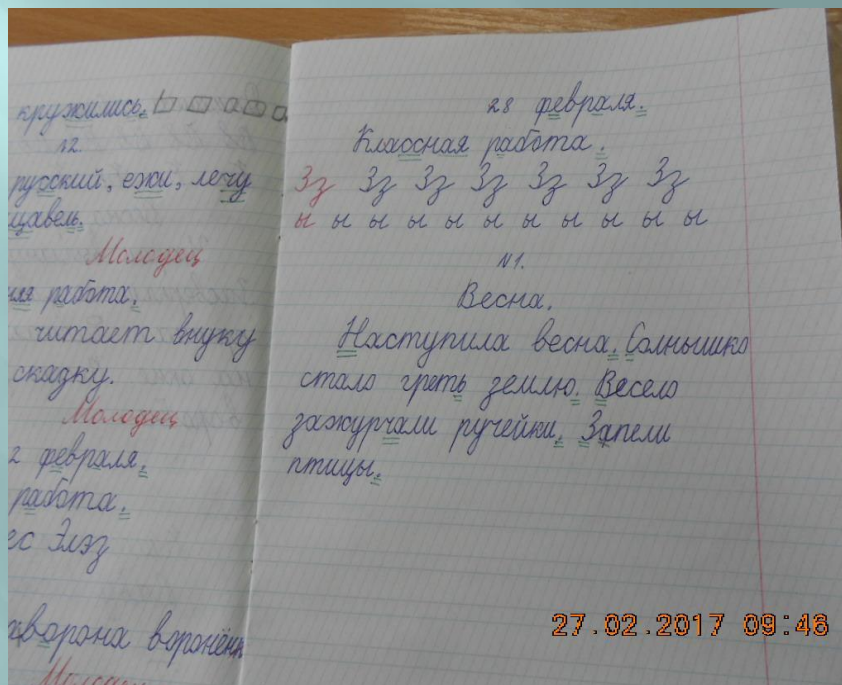 кружились.
№2.
русский, ежи, лечу
щавель.
Молодец
работа.
читает внуку
скадку.
Молодец
2 февраля.
работа.
ес Элэз
ворона воронёнк
28 февраля.
Классная работа.
Зз Зз Зз Зз Зз Зз Зз
ы ы ы ы ы ы ы ы ы ы ы
№1.
Весна.
Наступила весна. Солнышко
стало греть землю. Весело
зажурчали ручейки. Запели
птицы.
27.02.2017 09:46